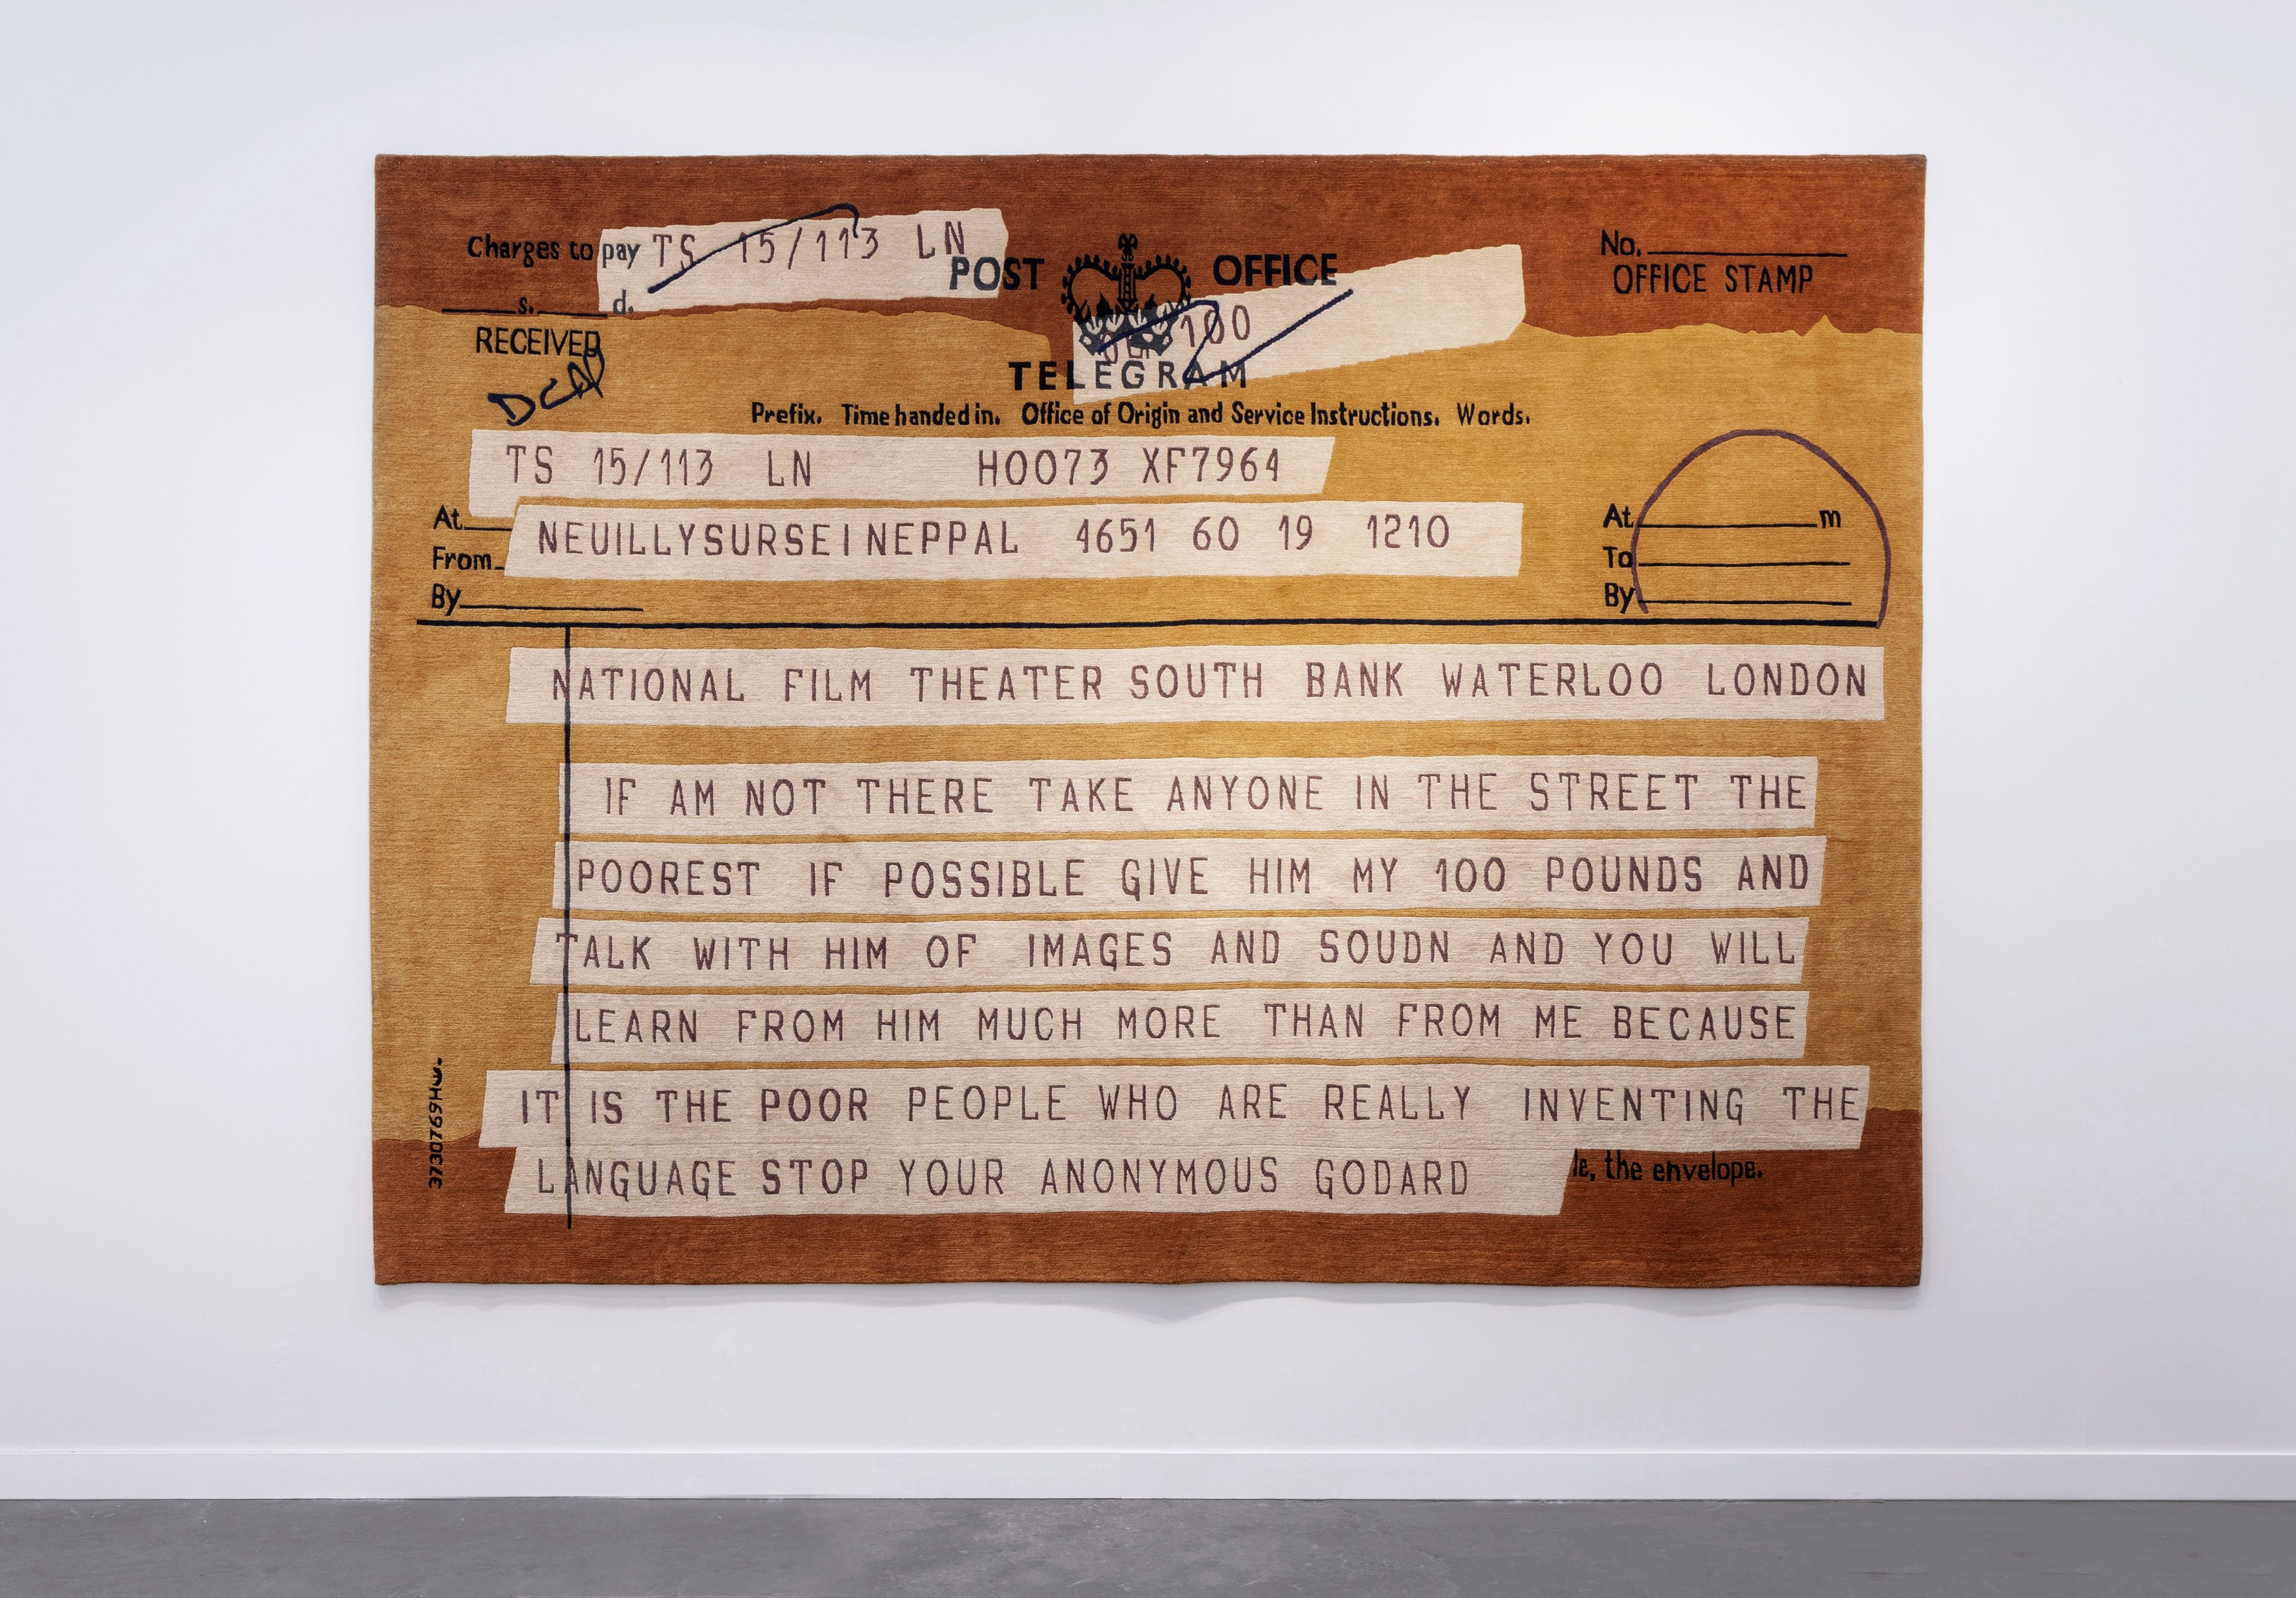 Charges to pay TS 15/113 LN
POST OFFICE
No.
OFFICE STAMP
s. d.
RECEIVED
100
TELEGRAM
Prefix. Time handed in. Office of Origin and Service Instructions. Words.
TS 15/113 LN H0073 XF7964
At
NEUILLYSURSEINEPPAL 4651 60 19 1210
From
By
At m
To
By
NATIONAL FILM THEATER SOUTH BANK WATERLOO LONDON
IF AM NOT THERE TAKE ANYONE IN THE STREET THE
POOREST IF POSSIBLE GIVE HIM MY 100 POUNDS AND
TALK WITH HIM OF IMAGES AND SOUDN AND YOU WILL
LEARN FROM HIM MUCH MORE THAN FROM ME BECAUSE
IT IS THE POOR PEOPLE WHO ARE REALLY INVENTING THE
LANGUAGE STOP YOUR ANONYMOUS GODARD
le, the envelope.
3730769HW.